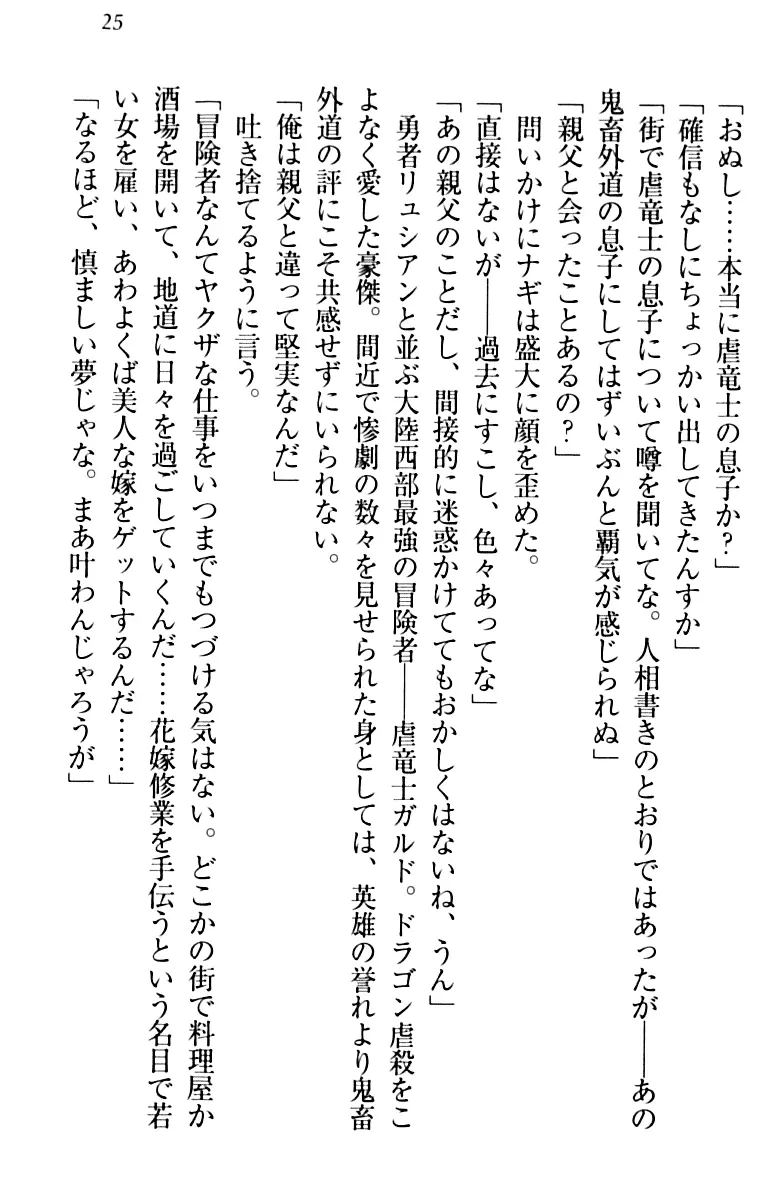 25
「おぬし……本当に虐竜士の息子か?」
「確信もなしにちょっかい出してきたんすか」
「街で虐竜士の息子について噂を聞いてな。人相書きのとおりではあったが――あの
鬼畜外道の息子にしてはずいぶんと覇気が感じられぬ」
「親父と会ったことあるの?」
問いかけにナギは盛大に顔を歪めた。
「直接はないが――過去にすこし、色々あってな」
「あの親父のことだし、間接的に迷惑かけててもおかしくはないね、うん」
勇者リュシアンと並ぶ大陸西部最強の冒険者――虐竜士ガルド。ドラゴン虐殺をこ
よなく愛した豪傑。間近で惨劇の数々を見せられた身としては、英雄の誉れより鬼畜
外道の評にこそ共感せずにいられない。
「俺は親父と違って堅実なんだ」
吐き捨てるように言う。
「冒険者なんてヤクザな仕事をいつまでもつづける気はない。どこかの街で料理屋か
酒場を開いて、地道に日々を過ごしていくんだ……花嫁修業を手伝うという名目で若
い女を雇い、あわよくば美人な嫁をゲットするんだ……」
「なるほど、慎ましい夢じゃな。まあ叶わんじゃろうが」